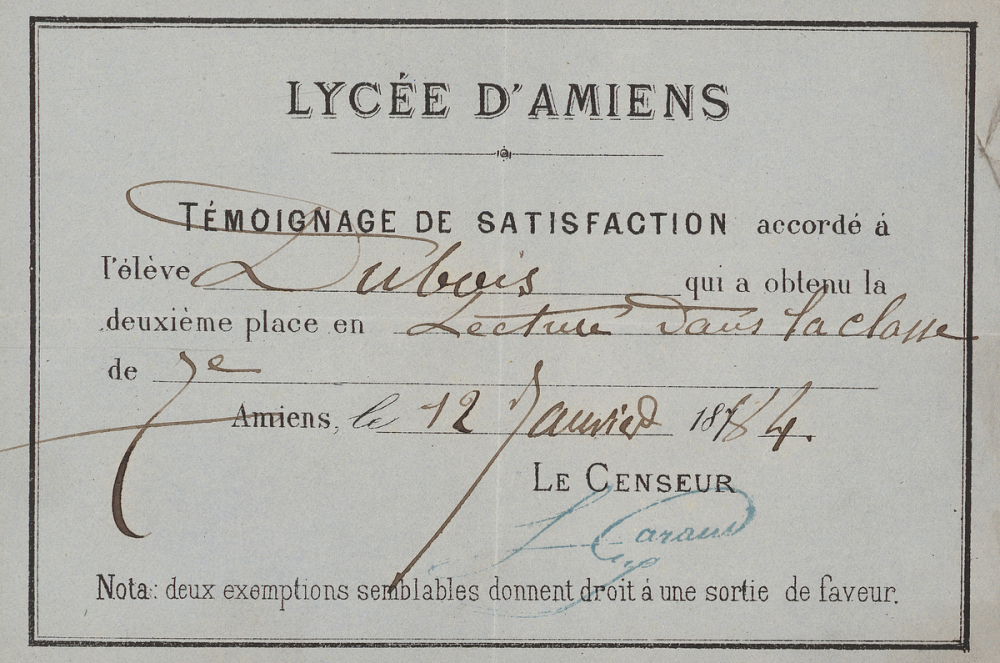 LYCÉE D'AMIENS
TÉMOIGNAGE DE SATISFACTION accordé á
l'élève Dubois qui a obtenu la
deuxième place en Lecture dans la classe
de 7e
Amiens, le 12 Janvier 1884.
LE CENSEUR
Nota: deux exemptions semblables donnent droit á une sortie de faveur.